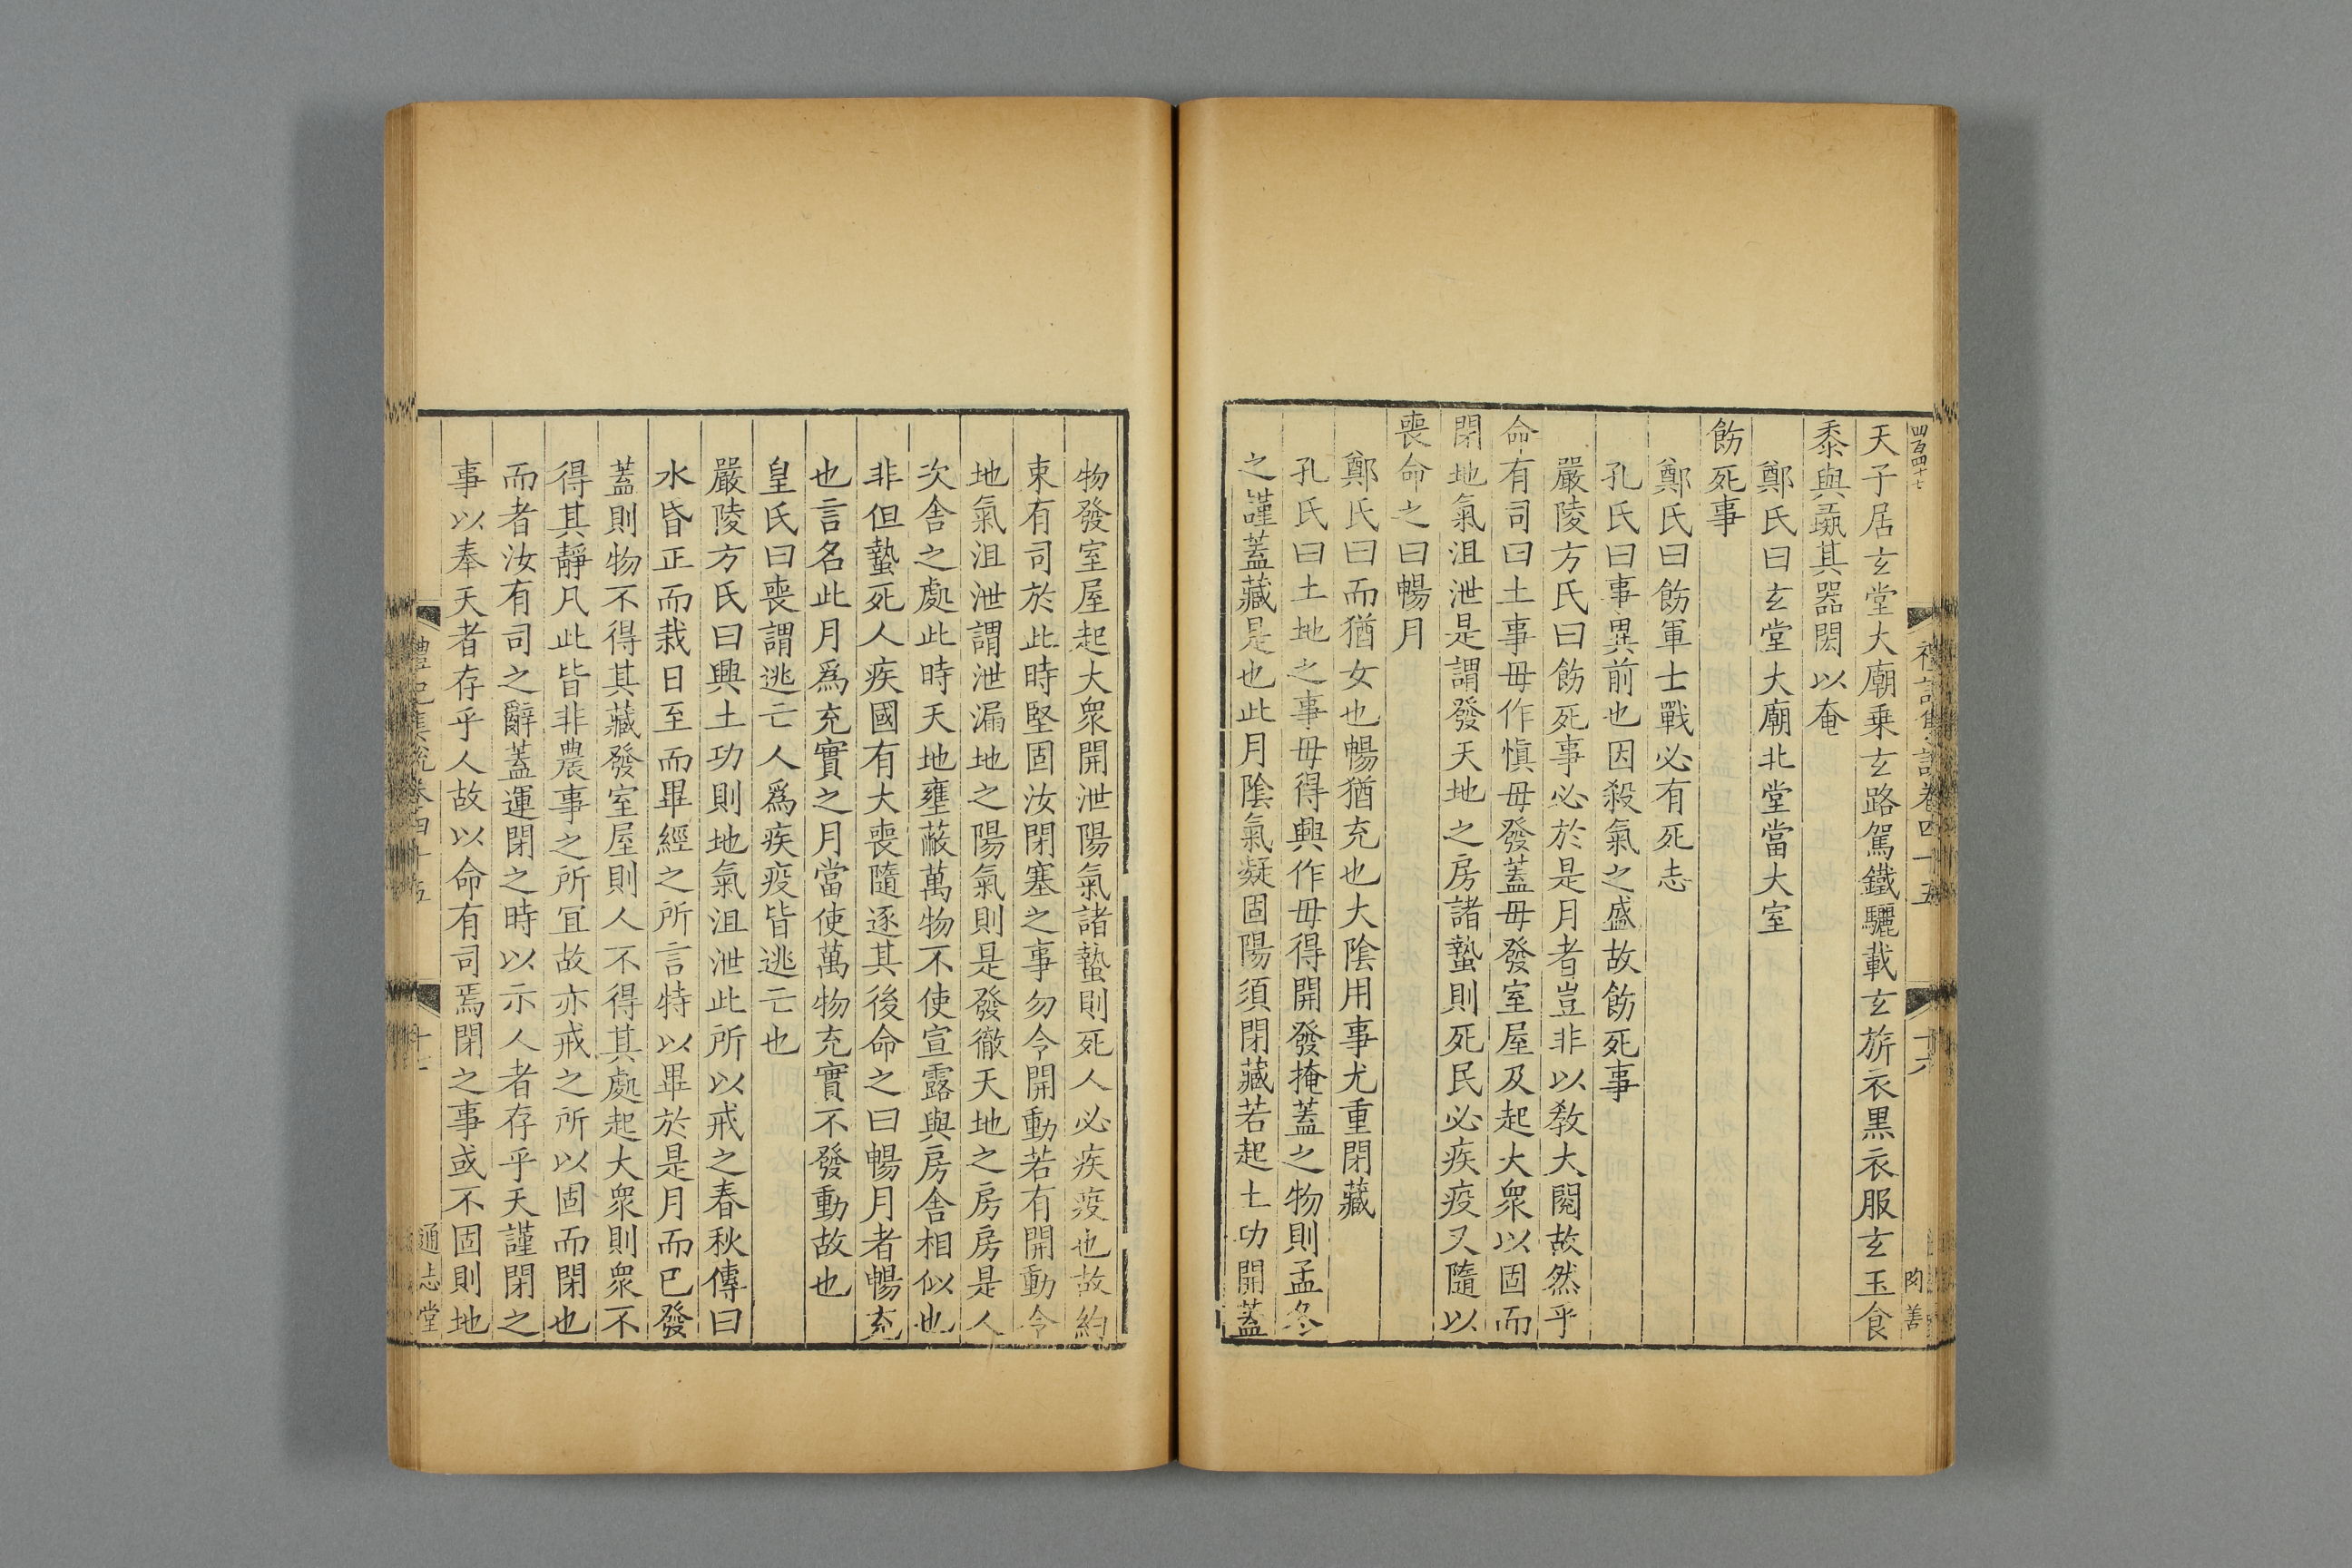 四百四十七
禮記集說卷四十五
十六
陶善
天子居玄堂大廟乗玄路駕鐵驪載玄旂衣黒衣服玄玉食
黍與彘其器閎以奄
鄭氏曰玄堂大廟北堂當大室
飭死事
鄭氏曰飭軍士戰必有死志
孔氏曰事異前也因殺氣之盛故飭死事
嚴陵方氏曰飭死事必於是月者豈非以教大閱故然乎
命有司曰土事毋作愼毋發蓋毋發室屋及起大衆以固而
閉地氣沮泄是謂發天地之房諸蟄則死民必疾疫又隨以
喪命之曰暢月
鄭氏曰而猶女也暢猶充也大陰用事尤重閉藏
孔氏曰土地之事毋得興作毋得開發掩蓋之物則孟冬
之謹蓋藏是也此月陰氣凝固陽須閉藏若起土功開蓋
物發室屋起大衆開泄陽氣諸蟄則死人必疾疫也故約
束有司於此時堅固汝閉塞之事勿令開動若有開動令
地氣沮泄謂泄漏地之陽氣則是發徹天地之房房是人
次舍之處此時天地壅蔽萬物不使宣露與房舍相似也
非但蟄死人疾國有大喪隨逐其後命之曰暢月者暢充
也言名此月爲充實之月當使萬物充實不發動故也
皇氏曰喪謂逃亡人爲疾疫皆逃亡也
嚴陵方氏曰興土功則地氣沮泄此所以戒之春秋傳曰
水昏正而栽日至而畢經之所言特以畢於是月而巳發
蓋則物不得其藏發室屋則人不得其處起大衆則衆不
得其靜凡此皆非農事之所冝故亦戒之所以固而閉也
而者汝有司之辭蓋運閉之時以示人者存乎天謹閉之
事以奉天者存乎人故以命有司焉閉之事或不固則地
禮記集說卷四十五
十七
通志堂